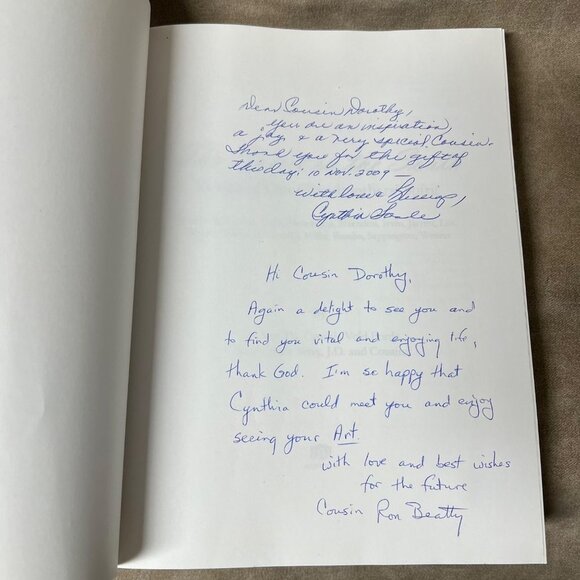 Dear Cousin Dorothy,
You are an inspiration,
a joy, & a very special Cousin.
Thank you for the gift of
this day: 10 Nov. 2009 —
with love & Blessings,
Cynthia
Hi Cousin Dorothy,
Again a delight to see you and
to find you vital and enjoying life,
thank God. I'm so happy that
Cynthia could meet you and enjoy
seeing your Art.
with love and best wishes
for the future
Cousin Ron Beatty